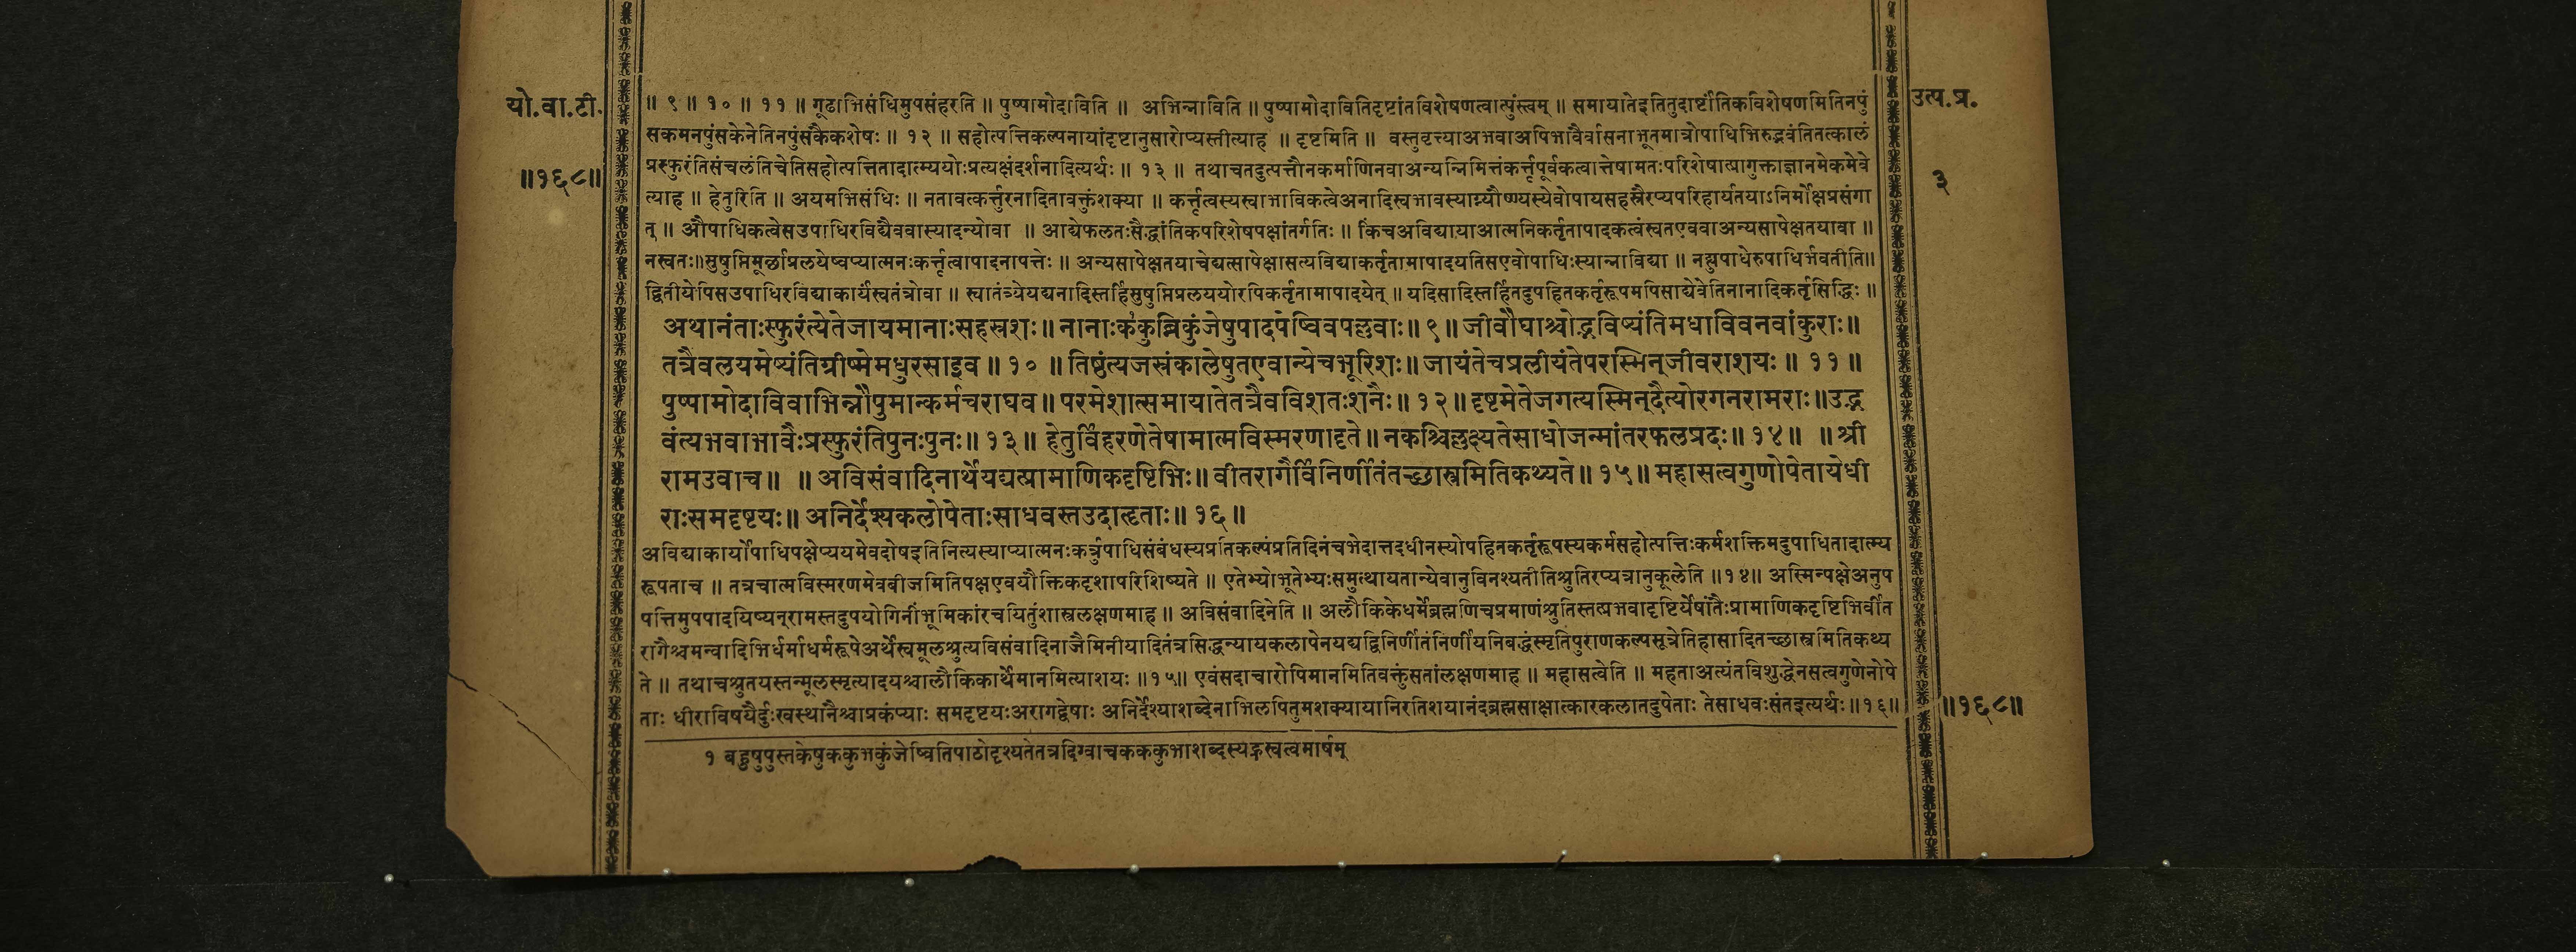 यो.वा.टी.
॥१६८॥
उत्प.प्र.
३
॥ ९ ॥ १० ॥ ११ ॥ गूढाभिसंधिमुपसंहरति ॥ पुष्पामोदाविति ॥ अभिन्नाविति ॥ पुष्पामोदावितिदृष्टांतविशेषणत्वात्पुंस्त्वम् ॥ समायातेइतितुदार्ष्टांतिकविशेषणमितिनपुं
सकमनपुंसकेनेतिनपुंसकैकशेषः ॥ १२ ॥ सहोत्पत्तिकल्पनायांदृष्टानुसारोप्यस्तीत्याह ॥ दृष्टमिति ॥ वस्तुवृत्त्याअभवाअपिभावैर्वासनाभूतमात्रोपाधिभिरुद्भवंतितत्कालं
प्रस्फुरंतिसंचलंतिचेतिसहोत्पत्तितादात्म्ययोःप्रत्यक्षंदर्शनादित्यर्थः ॥ १३ ॥ तथाचतदुत्पत्तौनकर्माणिनवाअन्यन्निमित्तंकर्त्तृपूर्वकत्वात्तेषामतःपरिशेषात्प्रागुक्ताज्ञानमेकमेवे
त्याह ॥ हेतुरिति ॥ अयमभिसंधिः ॥ नतावत्कर्त्तुरनादितावक्तुंशक्या ॥ कर्त्तृत्वस्यस्वाभाविकत्वेअनादिस्वभावस्याग्न्यौष्ण्यस्येवोपायसहस्रैरप्यपरिहार्यतयाऽनिर्मोक्षप्रसंगा
त् ॥ औपाधिकत्वेसउपाधिरविद्यैववास्यादन्योवा ॥ आद्येफलतःसैद्धांतिकपरिशेषपक्षांतर्गतिः ॥ किंचअविद्यायाआत्मनिकर्तृतापादकत्वंस्वतएववाअन्यसापेक्षतयावा ॥
नस्वतः॥सुषुप्तिमूर्छाप्रलयेष्वप्यात्मनःकर्त्तृत्वापादनापत्तेः ॥ अन्यसापेक्षतयाचेद्यत्सापेक्षासत्यविद्याकर्तृतामापादयतिसएवोपाधिःस्यान्नाविद्या ॥ नह्युपाधेरुपाधिर्भवतीति॥
द्वितीयेपिसउपाधिरविद्याकार्यंस्वतंत्रोवा ॥ स्वातंत्र्येयद्यनादिस्तर्हिसुषुप्तिप्रलययोरपिकर्तृतामापादयेत् ॥ यदिसादिस्तर्हितदुपहितकर्तृरूपमपिसाद्येवेतिनानादिकर्तृसिद्धिः ॥
अथानंताःस्फुरंत्येतेजायमानाःसहस्रशः॥ नानाःककुब्निकुंजेषुपादपेष्विवपल्लवाः॥ ९॥ जीवौघाश्चोद्भविष्यंतिमधाविवनवांकुराः॥
तत्रैवलयमेष्यंतिग्रीष्मेमधुरसाइव ॥ १० ॥ तिष्ठंत्यजस्रंकालेषुतएवान्येचभूरिशः॥ जायंतेचप्रलीयंतेपरस्मिन्जीवराशयः ॥ ११ ॥
पुष्पामोदाविवाभिन्नौपुमान्कर्मचराघव॥ परमेशात्समायातेतत्रैवविशतःशनैः॥ १२॥ दृष्टमेतेजगत्यस्मिन्दैत्योरगनरामराः॥उद्भ
वंत्यभवाभावैःप्रस्फुरंतिपुनःपुनः॥ १३॥ हेतुर्विहरणेतेषामात्मविस्मरणादृते॥ नकश्चिल्लक्ष्यतेसाधोजन्मांतरफलप्रदः॥ १४॥ ॥ श्री
रामउवाच॥ ॥ अविसंवादिनार्थेयद्यत्प्रामाणिकदृष्टिभिः॥ वीतरागैर्विनिर्णीतंतच्छास्त्रमितिकथ्यते॥ १५॥ महासत्वगुणोपेतायेधी
राःसमदृष्टयः॥ अनिर्देश्यकलोपेताःसाधवस्तउदाहृताः॥ १६॥
अविद्याकार्योपाधिपक्षेप्ययमेवदोषइतिनित्यस्याप्यात्मनःकर्त्रुपाधिसंबंधस्यप्रतिकल्पंप्रतिदिनंचभेदात्तदधीनस्योपहितकर्तृरूपस्यकर्मसहोत्पत्तिःकर्मशक्तिमदुपाधितादात्म्य
रूपताच ॥ तत्रचात्मविस्मरणमेवबीजमितिपक्षएवयौक्तिकदृशापरिशिष्यते ॥ एतेभ्योभूतेभ्यःसमुत्थायतान्येवानुविनश्यतीतिश्रुतिरप्यत्रानुकूलेति ॥१४॥ अस्मिन्पक्षेअनुप
पत्तिमुपपादयिष्यन्‌रामस्तदुपयोगिनींभूमिकांरचयितुंशास्त्रलक्षणमाह ॥ अविसंवादिनेति ॥ अलौकिकेधर्मेब्रह्मणिचप्रमाणंश्रुतिस्तत्प्रभवादृष्टिर्येषांतैःप्रामाणिकदृष्टिभिर्वीत
रागैश्चमन्वादिभिर्धर्माधर्मरूपेअर्थेस्वमूलश्रुत्यविसंवादिनाजैमिनीयादितंत्रसिद्धन्यायकलापेनयद्यद्विनिर्णीतंनिर्णीयनिबद्धंस्मृतिपुराणकल्पसूत्रेतिहासादितच्छास्त्रमितिकथ्य
ते ॥ तथाचश्रुतयस्तन्मूलस्मृत्यादयश्चालौकिकार्थेमानमित्याशयः ॥१५॥ एवंसदाचारोपिमानमितिवक्तुंसतांलक्षणमाह ॥ महासत्वेति ॥ महताअत्यंतविशुद्धेनसत्वगुणेनोपे
ताः धीराविषयैर्दुःखस्थानैश्चाप्रकंप्याः समदृष्टयःअरागद्वेषाः अनिर्देश्याशब्देनाभिलपितुमशक्यायानिरतिशयानंदब्रह्मसाक्षात्कारकलातदुपेताः तेसाधवःसंतइत्यर्थः॥१६॥
॥१६८॥
१ बहुषुपुस्तकेषुककुभकुंजेष्वितिपाठोदृश्यतेतत्रदिग्वाचकककुभाशब्दस्यह्रस्वत्वमार्षम्